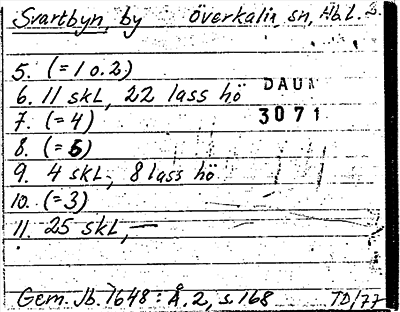 Svartbyn, by Överkalix, sn, Nb.l. 3.
5. (=1 o. 2)
6. 11 skl, 22 lass hö
DAUM
7. (=4)
3071
8. (=5)
9. 4 skl, 8 lass hö
10. (=3)
11. 25 skl, —
Gem. Jb. 1648: Å. 2, s. 168 TD/77